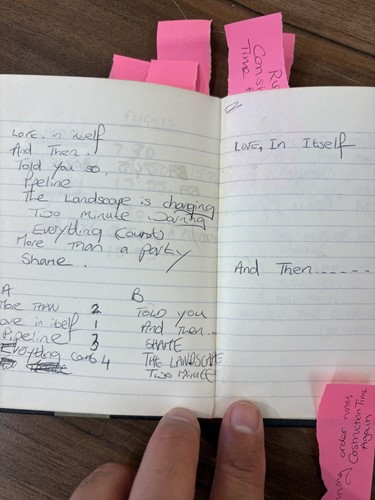 Love, in itself
And Then.
Told you so,
Pipeline
The Landscape is changing
Two minute Warning
Everything (counts)
More Than a party
Shame.
A
More THAN 2
Love in itself 1
Pipeline 3
Everything counts 4
B
TOLD you
And Then...
SHAME
THE LANDSCAPE
Two Minute
LOVE, In Itself
And Then......
Construction
Time
order notes
Costruction Time
Again